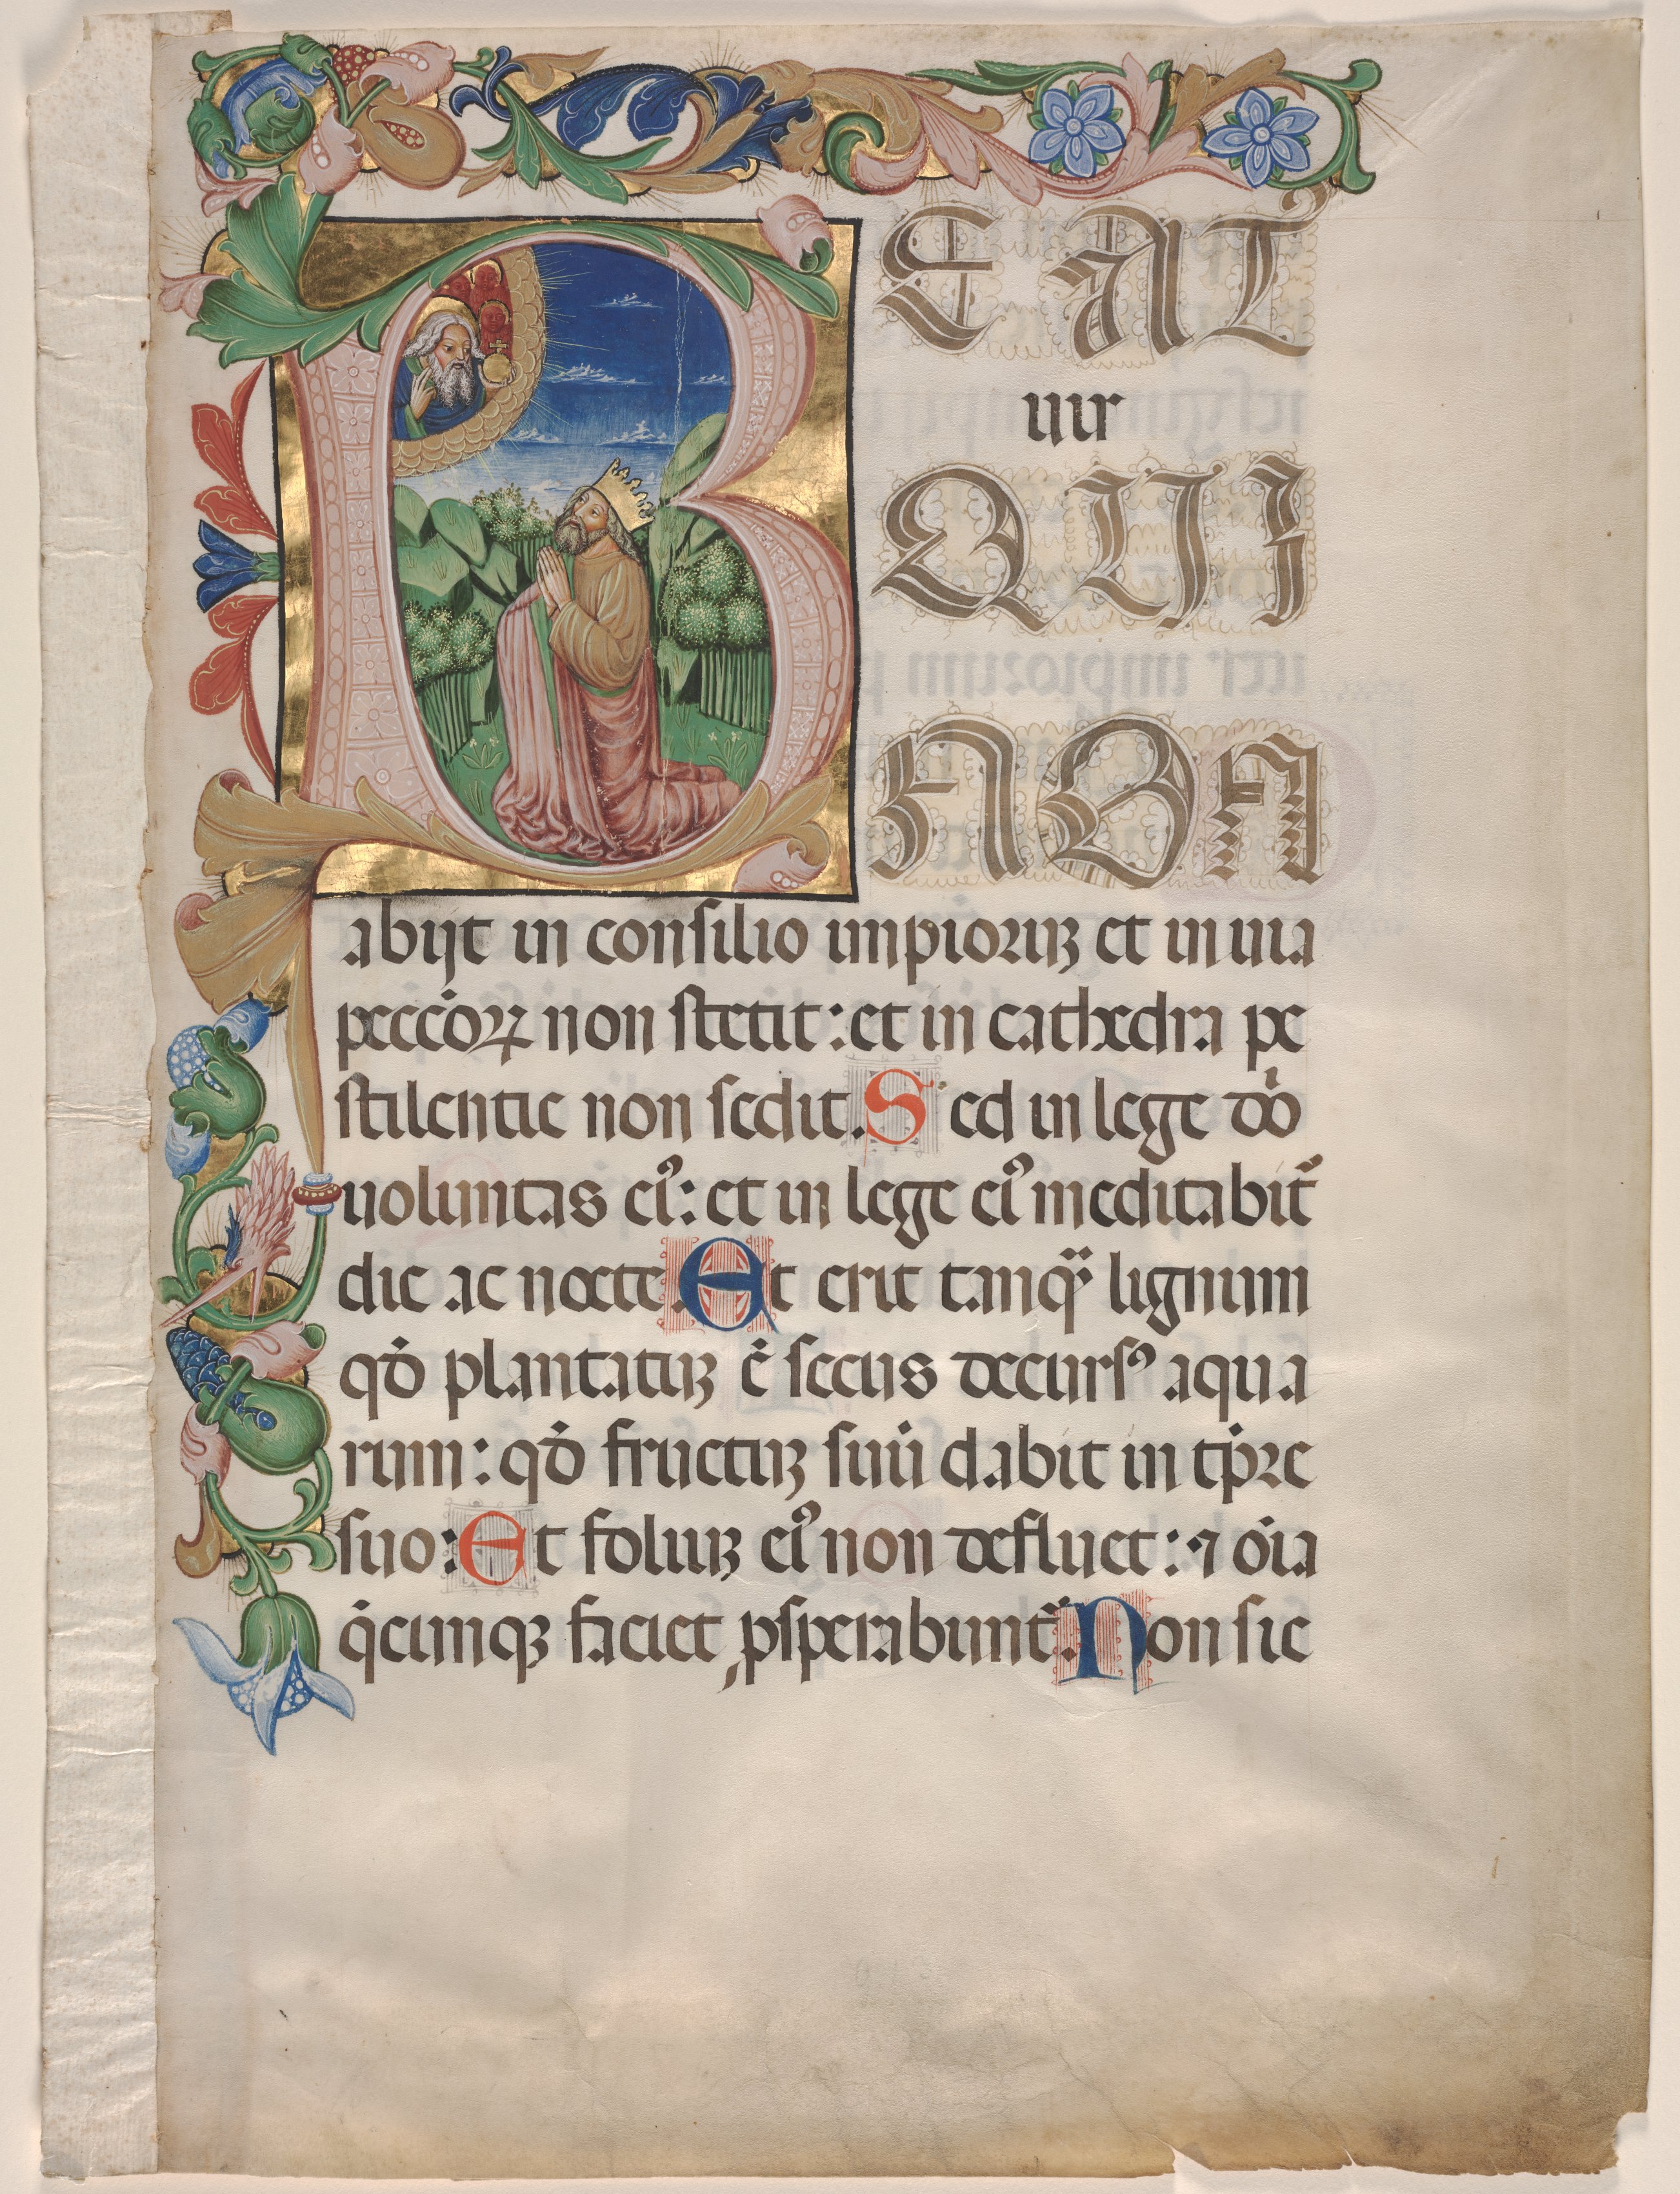 BEAT
uir
QUI
NON
abijt in consilio impioruꝫ et in uia
pecco᷑ꝝ non stetit: et in cathedra pe
stilentie non sedit. Sed in lege dn̄i
uoluntas eiꝰ: et in lege eiꝰ meditabit᷑
die ac nocte. Et erit tanqᷓ lignum
qđ plantatuꝫ ē secus decursꝰ aqua
rum: qđ fructuꝫ suū dabit in tp̄re
suo: Et foliuꝫ eiꝰ non defluet: ⁊ oīa
q̄cunqꝫ faciet ꝓsperabunt᷑. Non sic